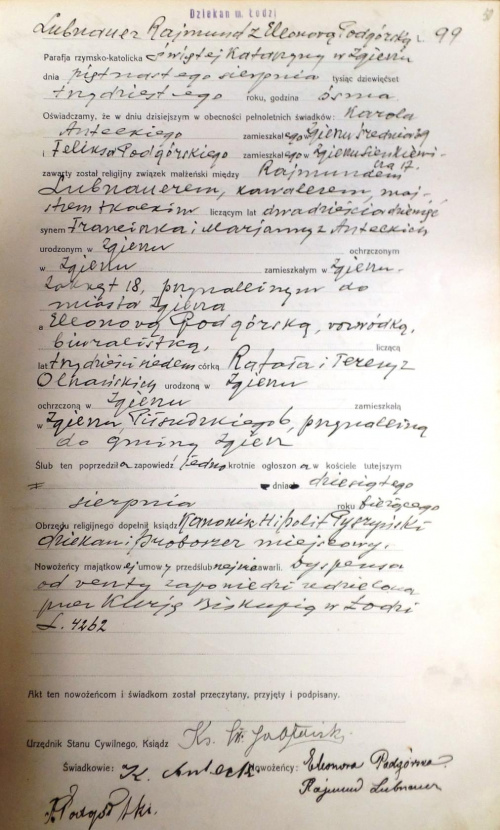 Dziekan m. Łodzi
Lubnauer Rajmund z Eleonorą Podgórską 99
Parafja rzymsko-katolicka Świętej Katarzyny w Zgierzu
dnia piętnastego sierpnia tysiąc dziewięćset
trzydziestego roku, godzina ósma
Oświadczamy, że w dniu dzisiejszym w obecności pełnoletnich świadków: Karola
Anteckiego zamieszkałego w Zgierzu Średnia
Feliksa Podgórskiego zamieszkałego w Zgierzu Sienkiewi-
cza 17.
zawarty został religijny związek małżeński między Rajmundem
Lubnauerem, kawalerem, maj-
strem tkackim liczącym lat dwadzieścia dziewięć
synem Franciszka i Marjanny z Anteckich
urodzonym w Zgierzu ochrzczonym
w Zgierzu zamieszkałym w Zgierzu
Zakręt 18, przynależnym do
miasta Zgierza
a Eleonorą Podgórską, rozwódką,
biuralistką, liczącą
lat trzydzieści siedem córką Rafała i Teresy z
urodzoną w Zgierzu
ochrzczoną w Zgierzu zamieszkałą
w Zgierzu, Piłsudskiego 6, przynależną
do gminy Zgierz
Ślub ten poprzedziła zapowiedź jednokrotnie ogłoszona w kościele tutejszym
dnia dziesiątego
sierpnia roku bieżącego
Obrzędu religijnego dopełnił ksiądz Kanonik Hipolit Pyszyński
dziekan i proboszcz miejscowy.
Nowożeńcy majątkowej umowy przedślubnej nie zawarli. Dyspensa
od reszty zapowiedzi udzielona
przez Kurję Biskupią w Łodzi
L. 4262
Akt ten nowożeńcom i świadkom został przeczytany, przyjęty i podpisany.
Urzędnik Stanu Cywilnego, Ksiądz Ks.
Świadkowie: K. Antecki Nowożeńcy: Eleonora Podgórska
Rajmund Lubnauer
F Podgórski.